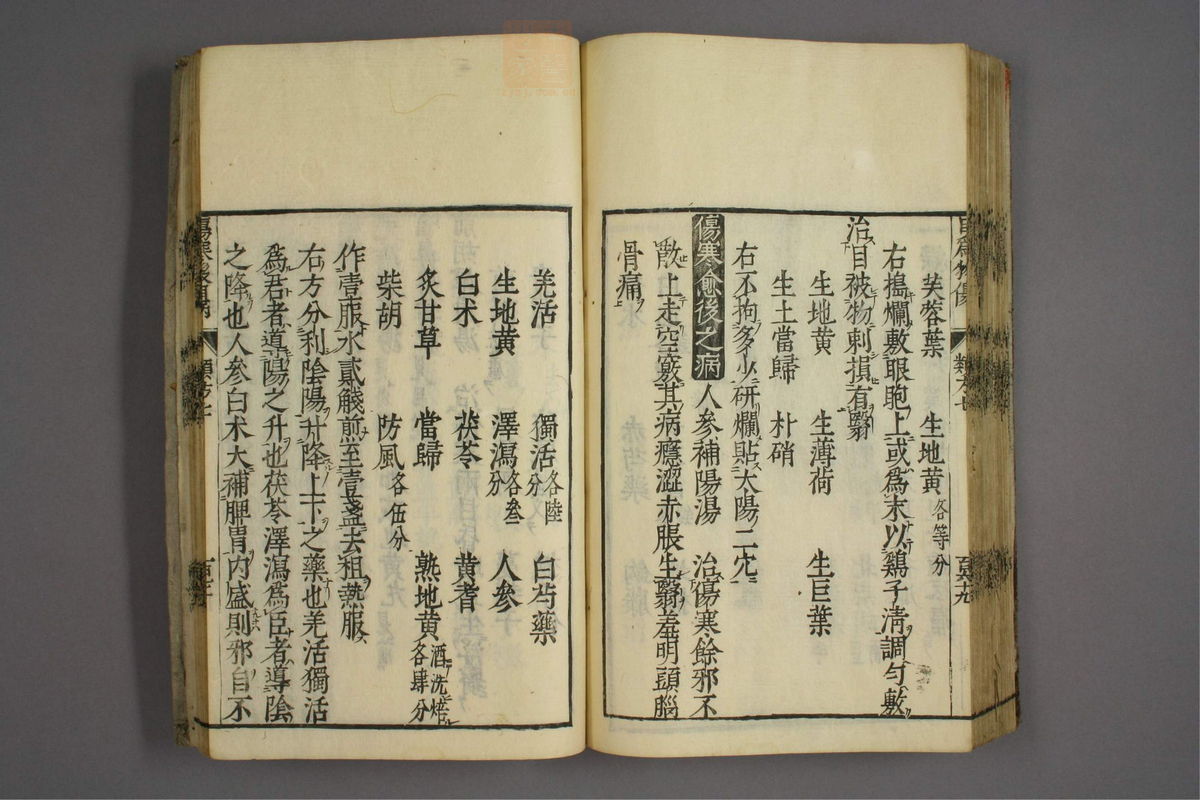 芙蓉葉　生地黄各等分
右搗爛敷眼胞上或爲末以鷄子淸調勻敷
治目被物刺損有翳
生地黄　生薄荷　生巨葉
生土當歸　朴硝
右不拘多少研爛貼太陽二穴
傷寒愈後之病　人參補陽湯　治傷寒餘邪不
散上走空竅其病癮澀赤脹生翳羞明頭腦
骨痛
羌活　獨活各陸分　白芍藥
生地黄　澤瀉各叁分　人參
白朮　茯苓　黄耆
炙甘草　當歸　熟地黄酒洗焙各肆分
柴胡　防風各伍分
作壹服水貳觥煎至壹盞去柤熱服
右方分利陰陽升降上下之藥也羌活獨活
爲君者導陽之升也茯苓澤瀉爲臣者導陰
之降也人參白朮大補脾胃内盛則邪自不